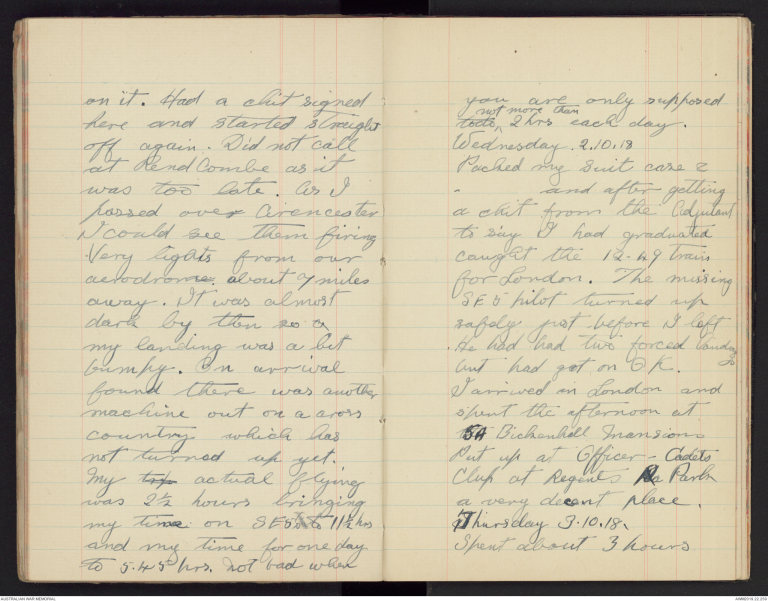 on it. Had a chit signed
here and started straight
off again. Did not call
at RendCombe as it
was too late. As I
passed over Cirencester
I could see them firing
Very lights from our
aerodrome about 7 miles
away. It was almost
dark by then so
my landing was a bit
bumpy. On arrival
found there was another
machine out on a cross
country which has
not turned up yet.
My actual flying
was 2½ hours bringing
my time on SE5s to 11½ hrs
and my time for one day
to 5.45 hrs. Not bad when
you are only supposed
not more than
2 hrs each day.
Wednesday. 2.10.18
Packed my suit case &
and after getting
a chit from the Adjutant
to say I had graduated
caught the 12-49 train
for London. The missing
SE5 pilot turned up
safely just before I left
He had had two forced landings
but had got on OK.
I arrived in London and
spent the afternoon at
5A Bickenhall Mansions
Put up at Officer-Cadets
Club at Regents Park
a very decent place.
Thursday 3.10.18.
Spent about 3 hours
AUSTRALIAN WAR MEMORIAL
AWM2019.22.259